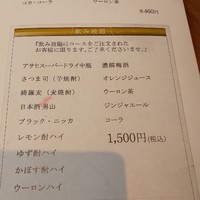 コカ・コーラ
ウーロン茶
各460円
飲み放題
『飲み放題はコースをご注文された
お客様に限ります。ご了承くださいませ。』
アサヒスーパードライ中瓶 濃醇梅酒
さつま司(芋焼酎) オレンジジュース
綺羅麦(麦焼酎) ウーロン茶
日本酒 男山 ジンジャエール
ブラック・ニッカ コーラ
レモン酎ハイ 1,500円(税込)
ゆず酎ハイ
かぼす酎ハイ
ウーロンハイ